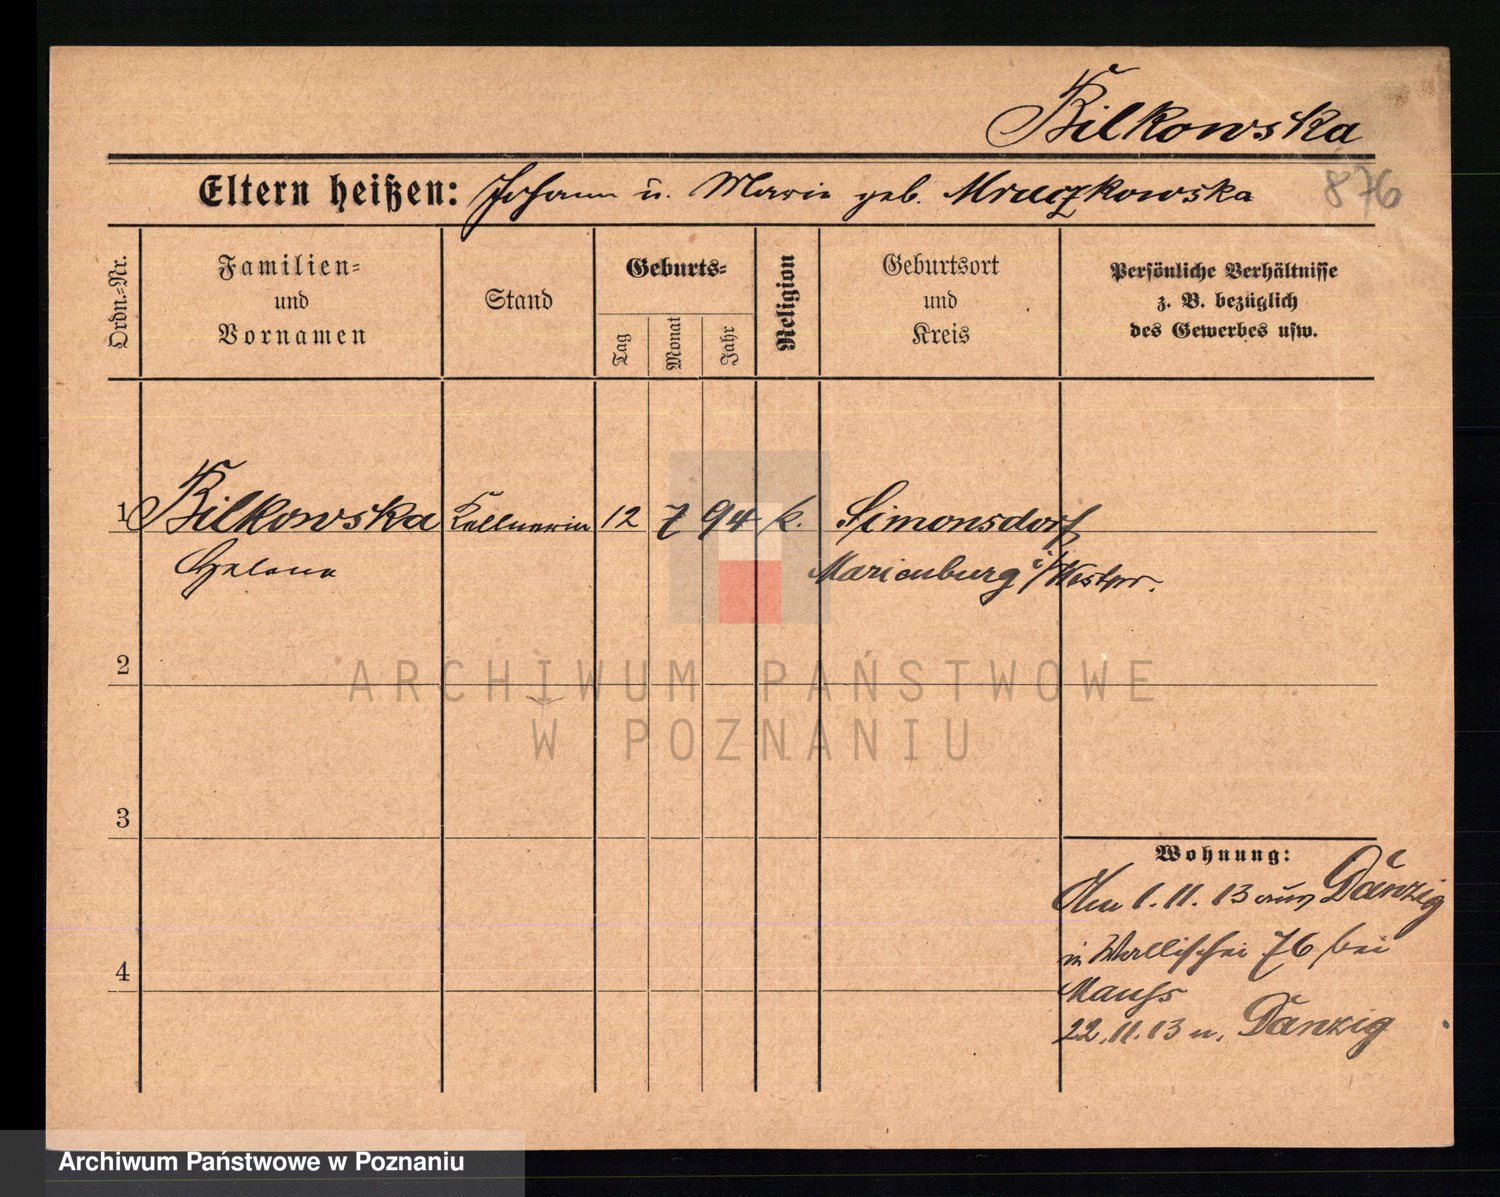 Bilkowska
Eltern heißen: Johann u. Marie geb. Mruczkowska
876
Ordn.-Nr.
Familien-
und
Vornamen
Stand
Geburts-
Tag
Monat
Jahr
Religion
Geburtsort
und
Kreis
Persönliche Verhältnisse
z. B. bezüglich
des Gewerbes usw.
1 Bilkowska Kellnerin 12 7 94 k. Simonsdorf
Helena Marienburg i/Westpr.
2
ARCHIWUM PAŃSTWOWE
W POZNANIU
3
Wohnung:
Am 1.11.13 aus Danzig
in Wallischei 76 bei
4
22.11.13 n. Danzig
Archiwum Państwowe w Poznaniu